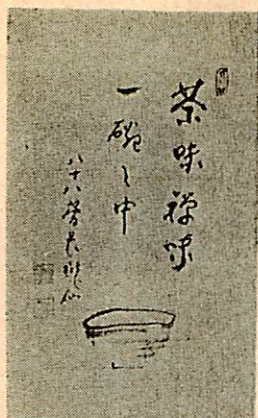 茶味禪味
一碗之中
八十八